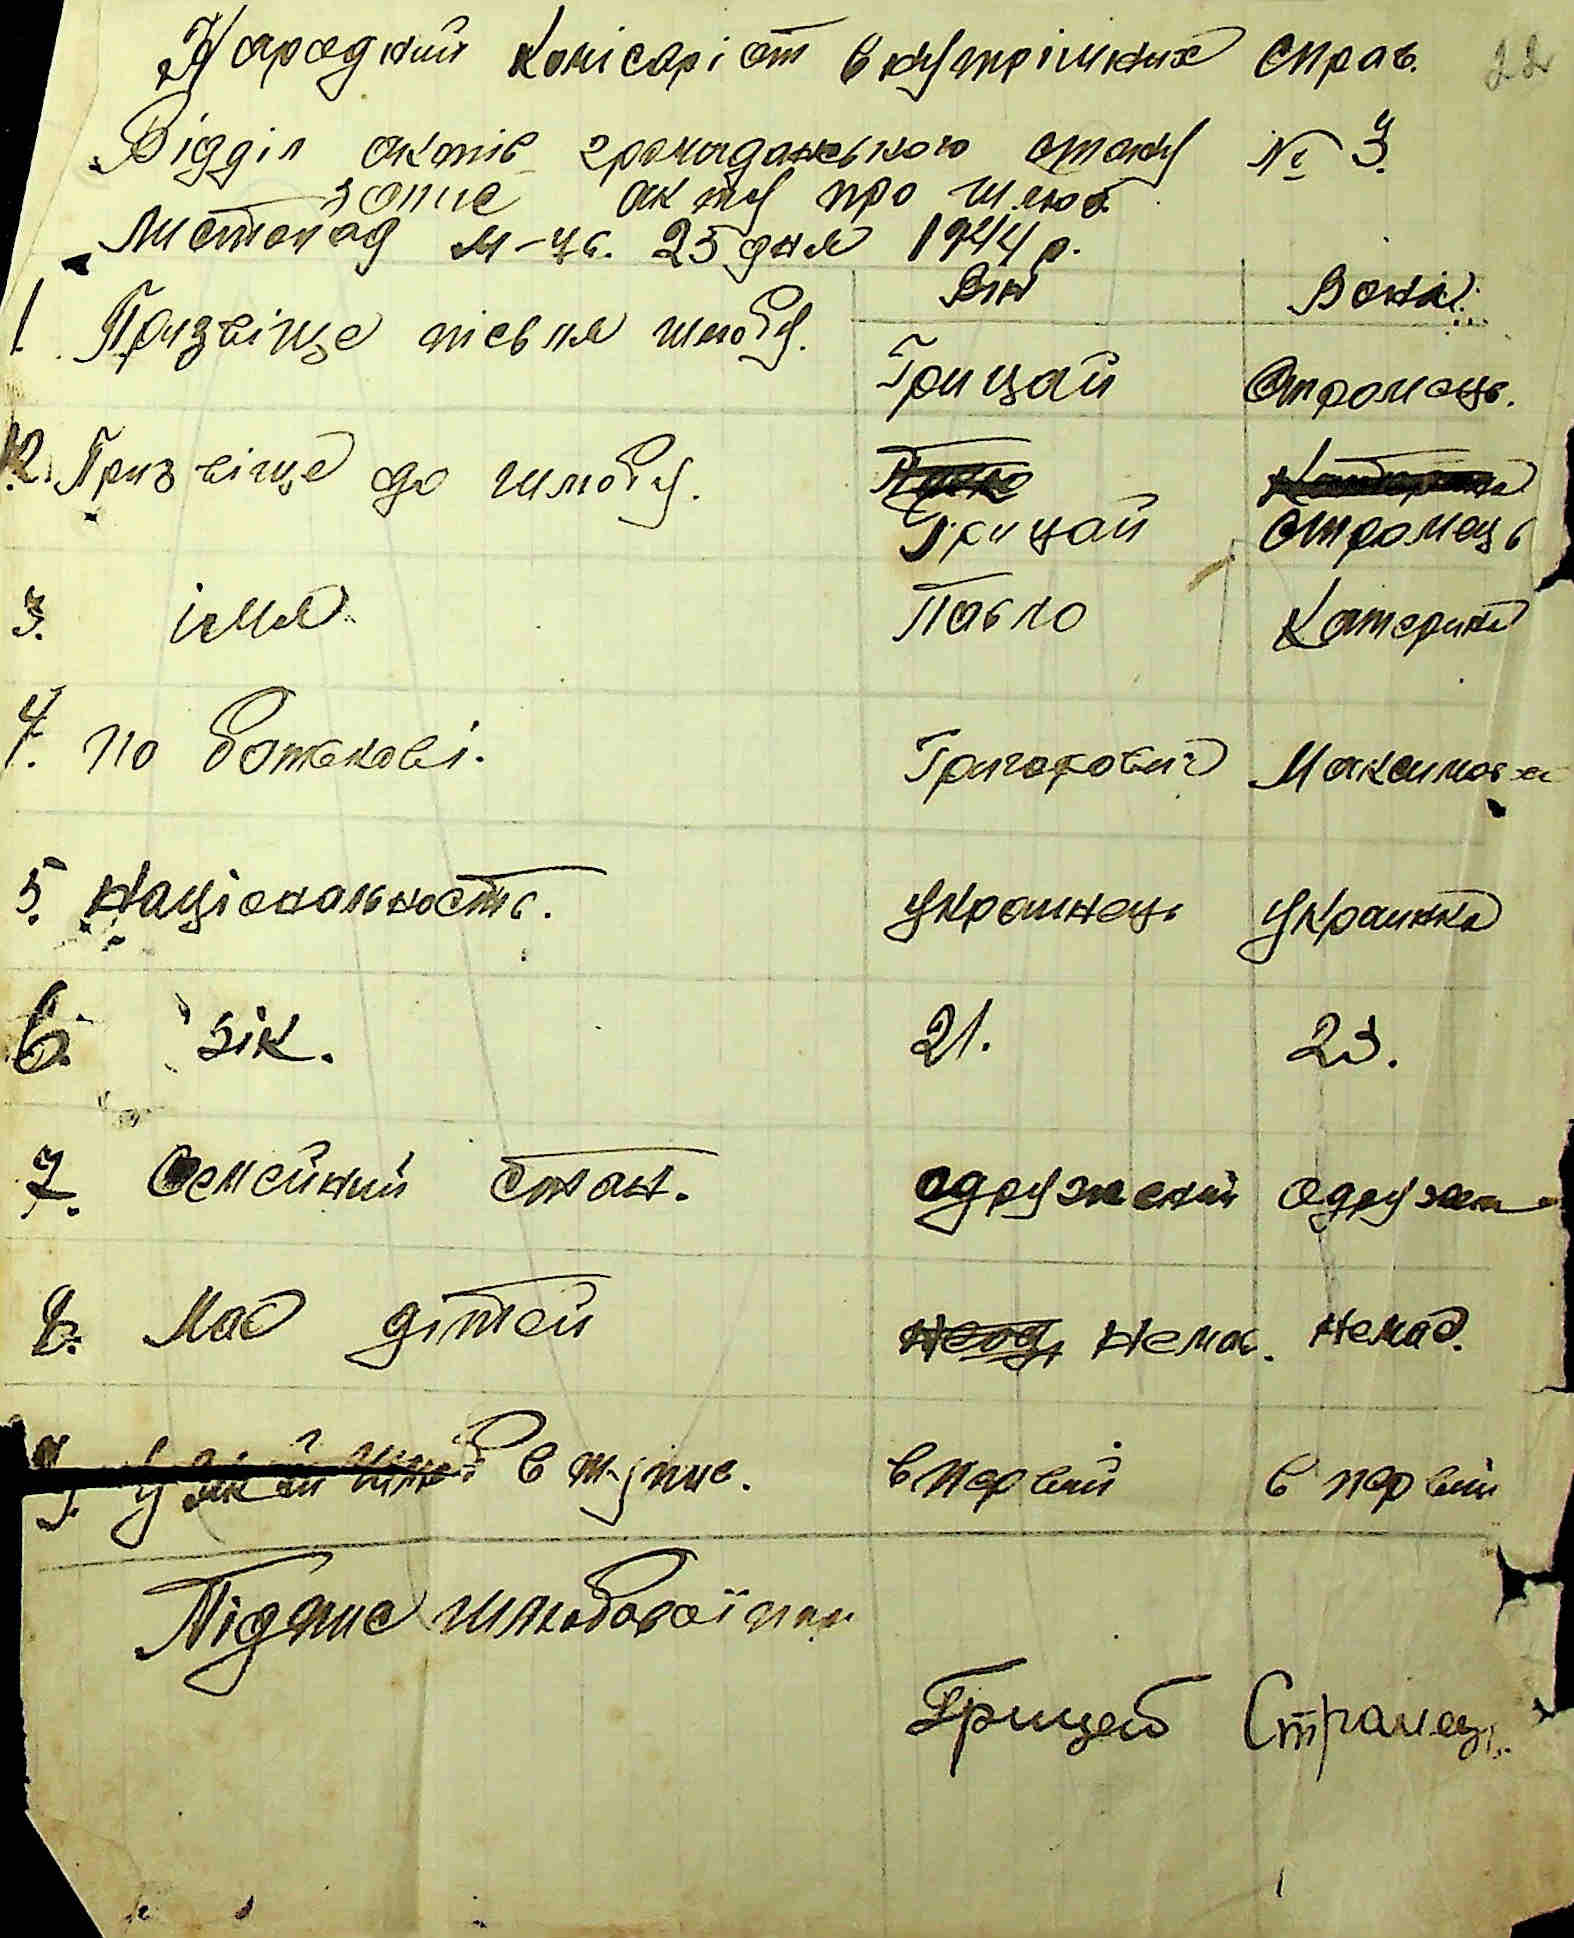 Народний Комісаріат внутрішних справ. 22
Відділ актів громаданського стану № 3.
запис акту про шлюб.
Листопад м-ць. 25 дня 1944 р.
Він Вона.
1. Призвіще пісьля шлюбу. Грицай Стромець.
2. Призвіще до шлюбу. Павло Катерина
Грицай Стромець
3. імя Павло Катерина
4. По батькові. Григорович Максимовна
5. Національность. Украинець Украинка
6. вік. 21. 23.
7. Семейний стан. одружений одружен
8. Має дітей Немає. Немає.
9. У який шлюб вступає. в первий в первий
Підпис шлюбової пари
Грицай Страмець.